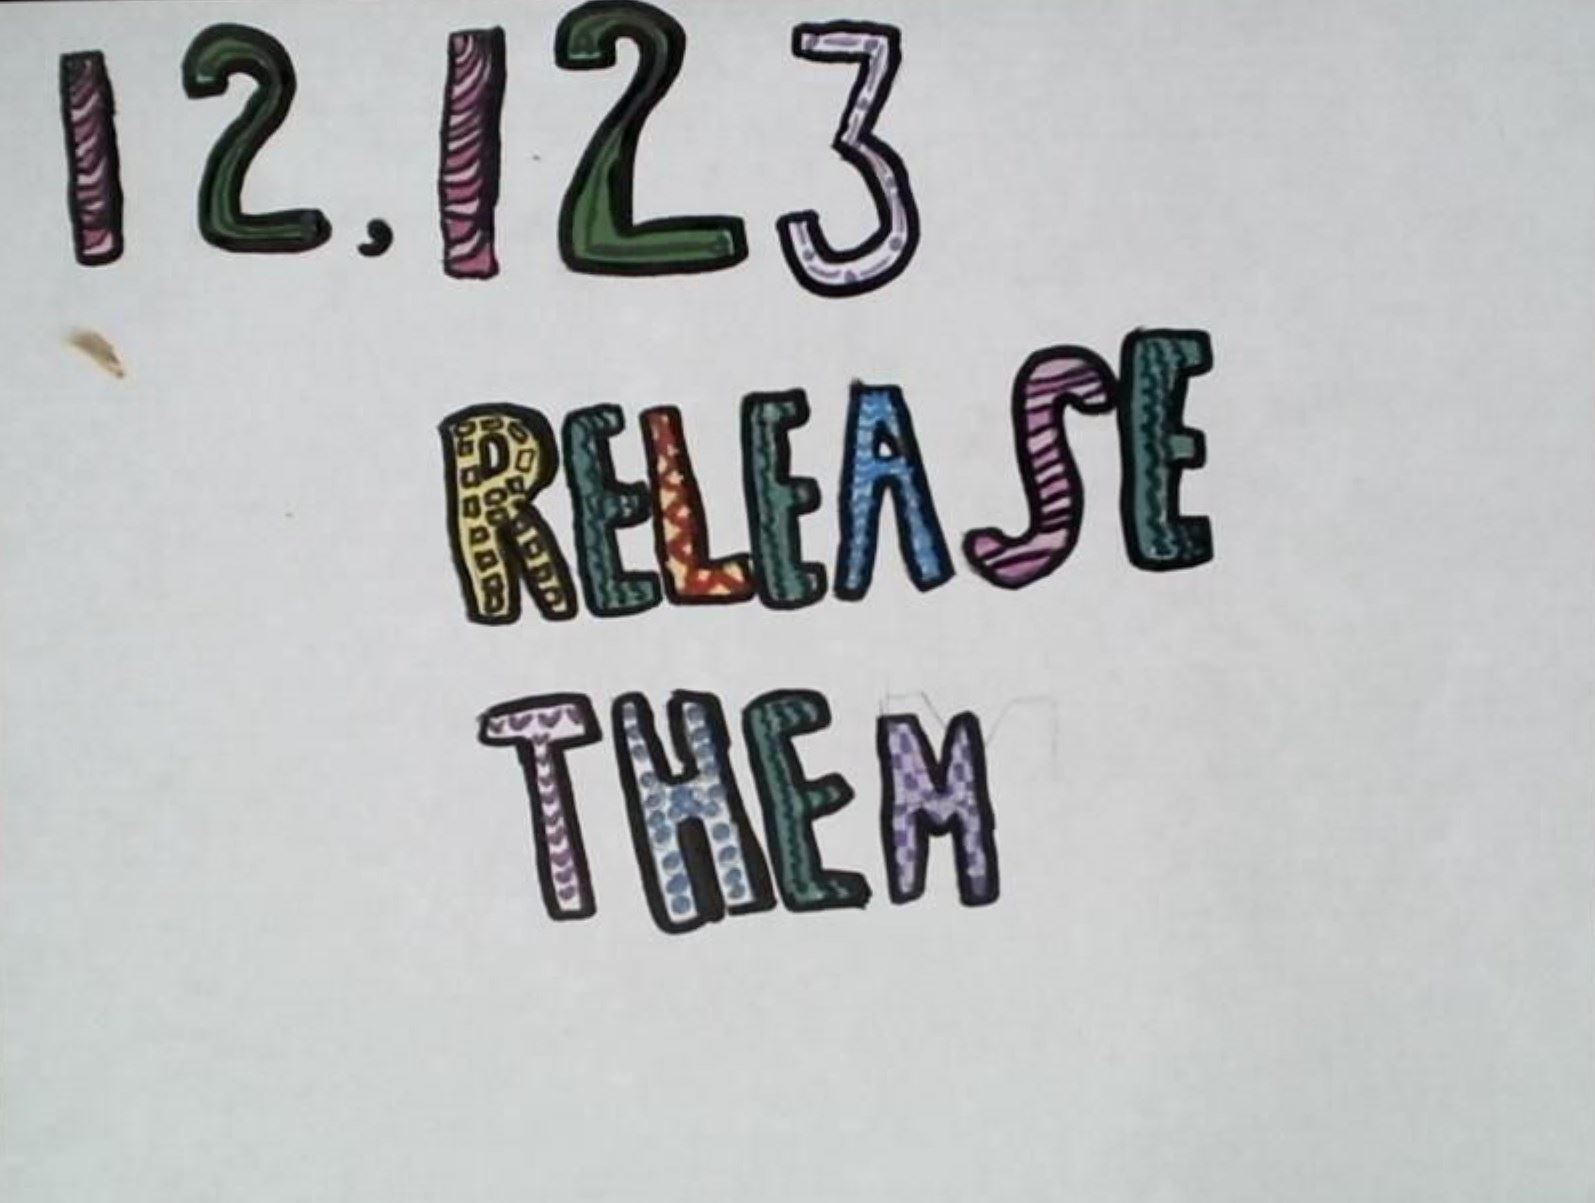 12,123
RELEASE
THEM